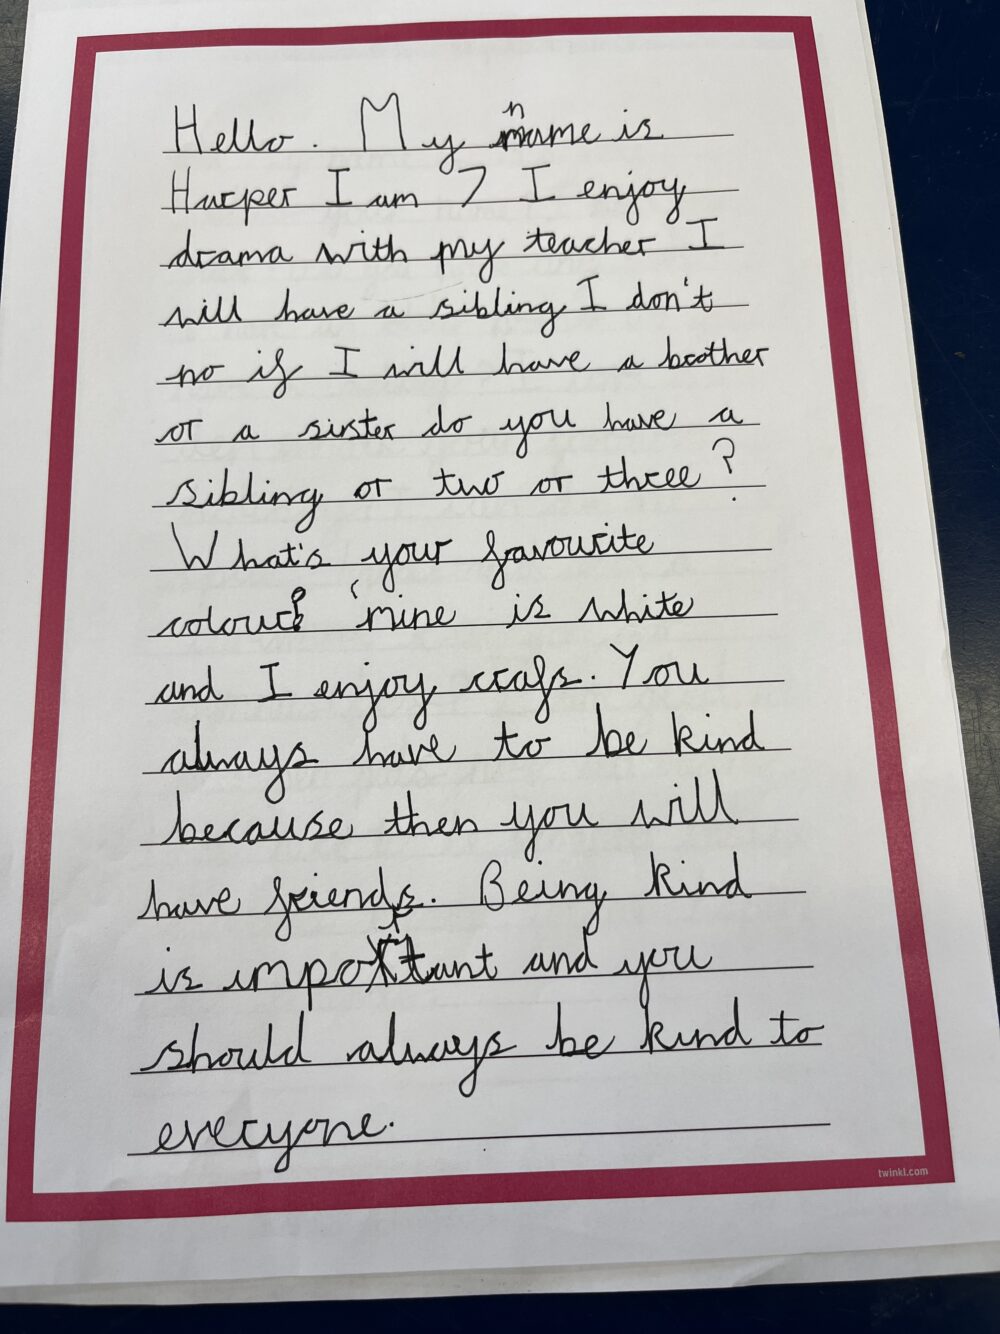 Hello. My name is
Harper I am 7 I enjoy
drama with my teacher I
will have a sibling I don't
no if I will have a brother
or a sister do you have a
sibling or two or three?
What's your favourite
colour? mine is white
and I enjoy crafs. You
always have to be kind
because then you will
have friends. Being kind
is important and you
should always be kind to
everyone.
twinkl.com